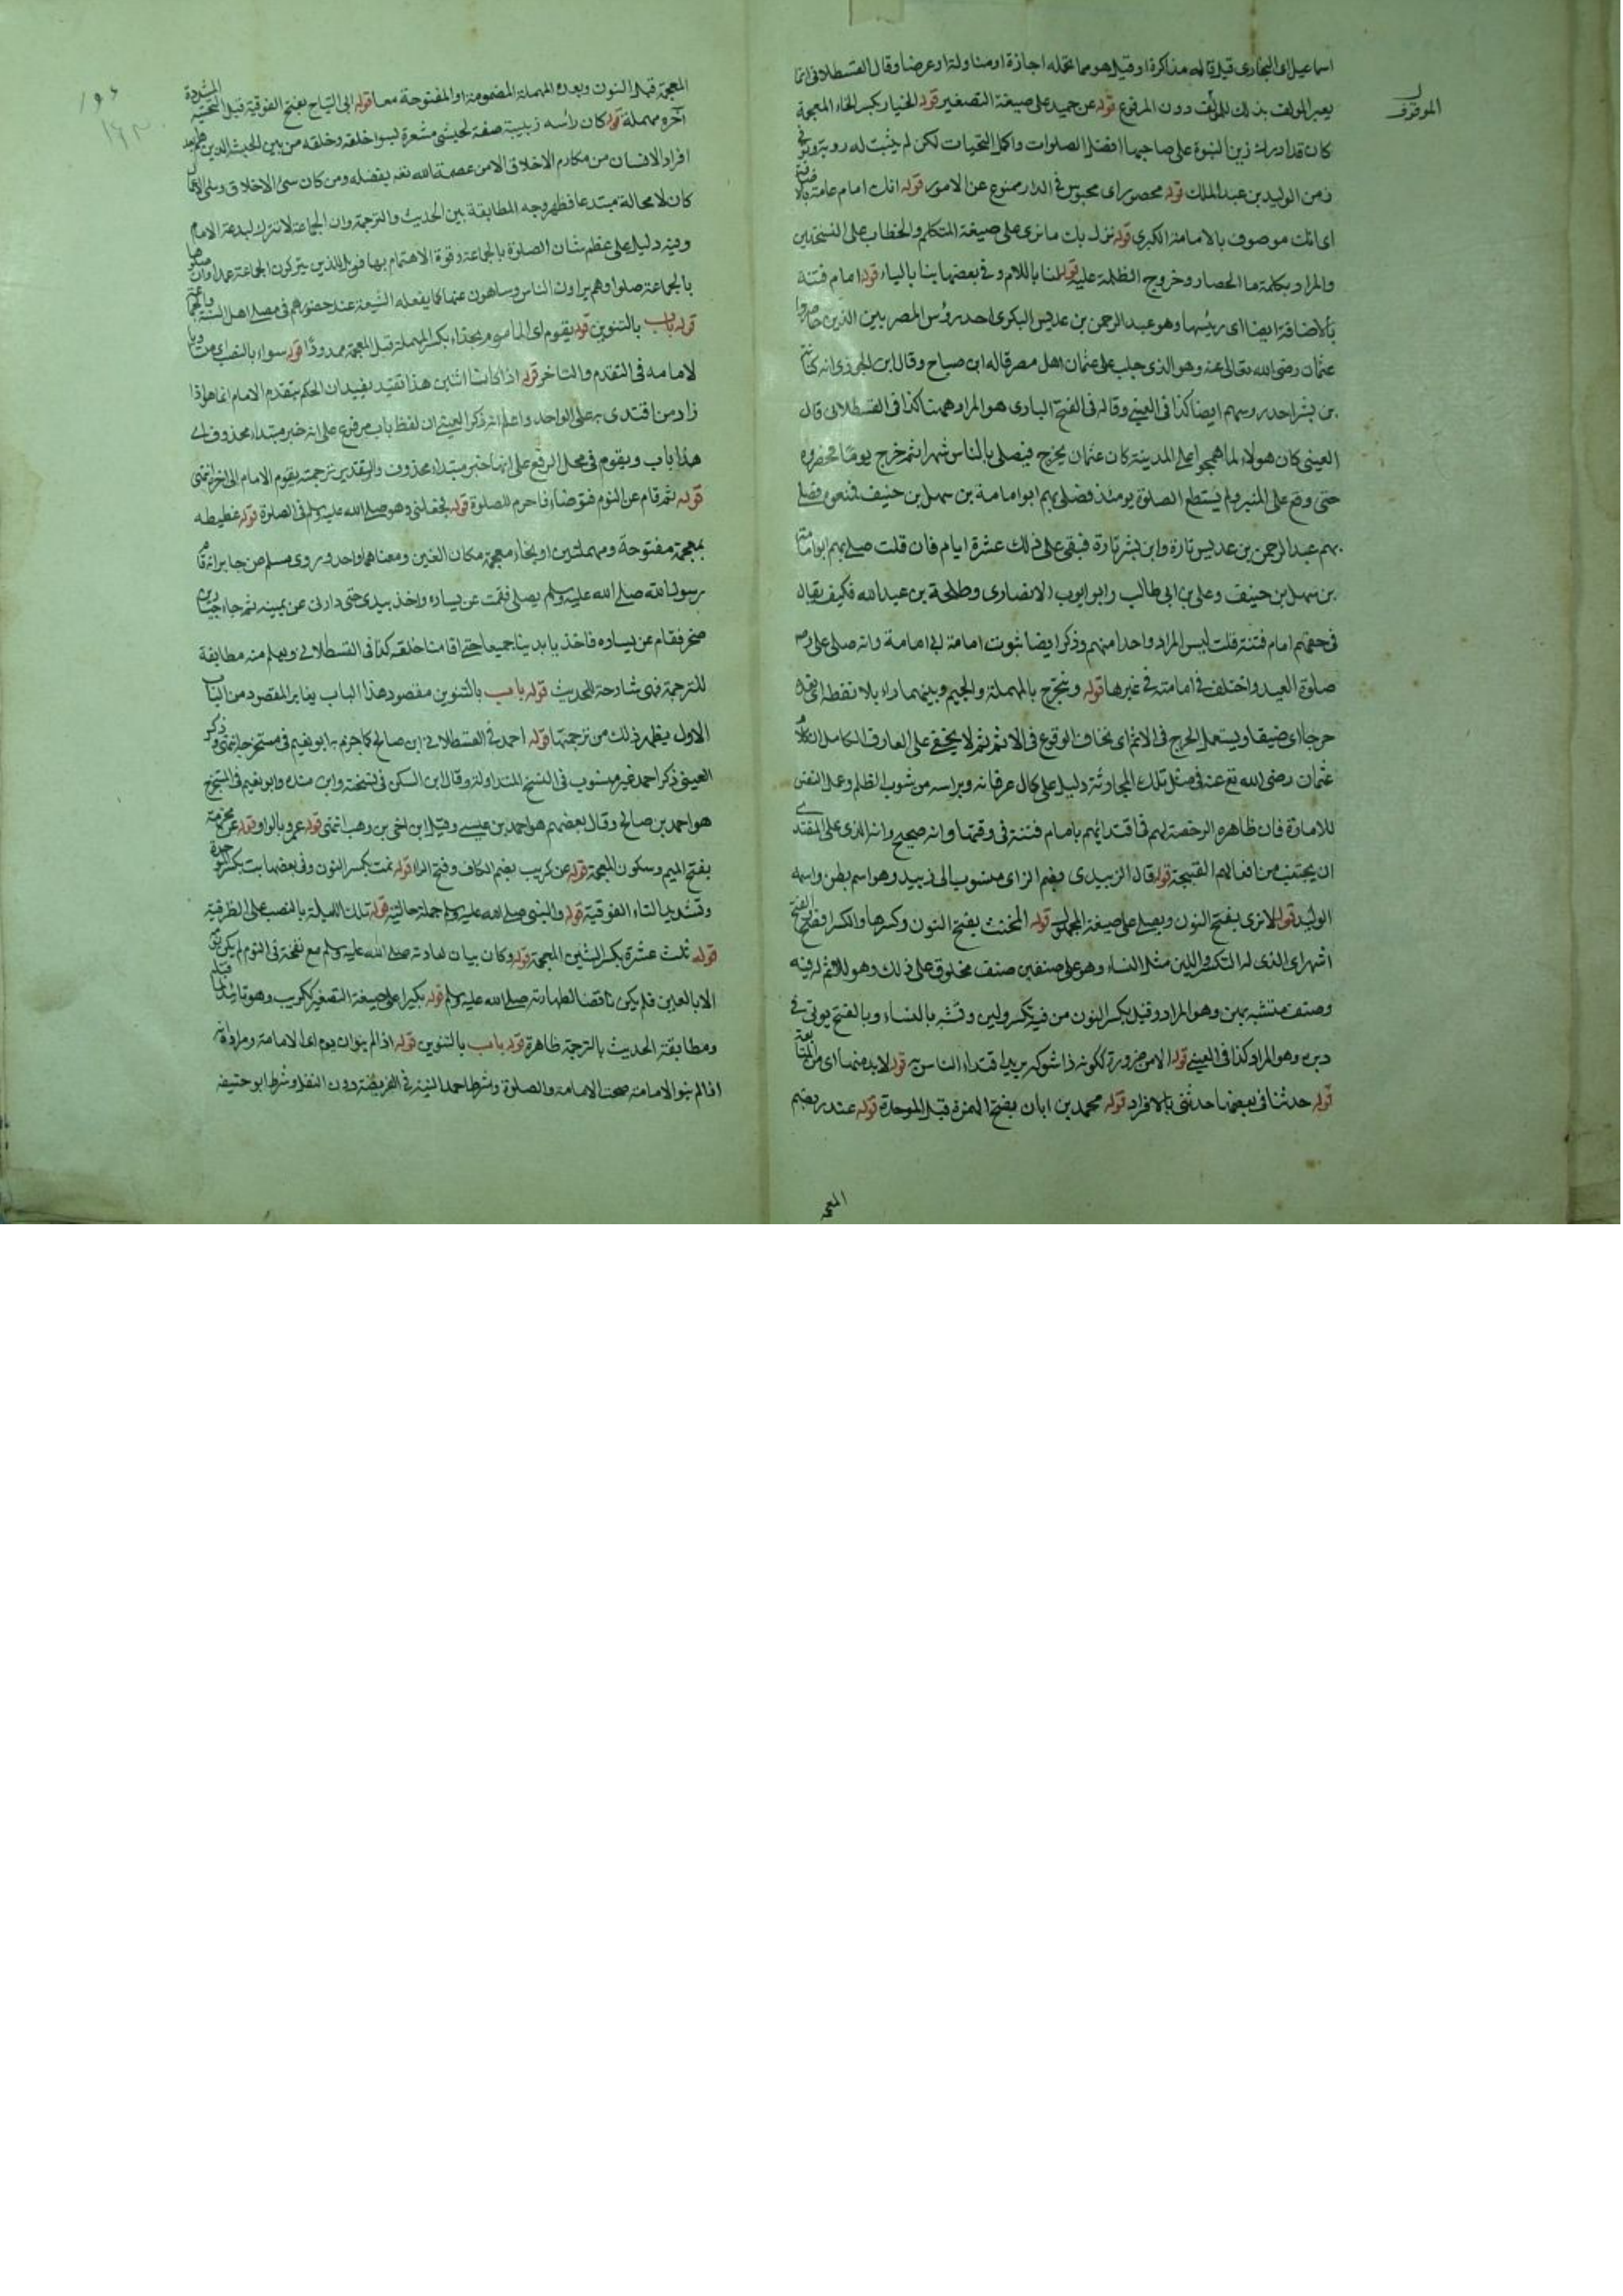 اسماعيل اى البخارى قيل قاله مذاكرة او قيل هو مما تحمله اجازة او مناولة او عرضا وقال القسطلانى انما
يعبر المولف بذلك للموقوف دون المرفوع قوله عن حميد على صيغة التصغير قوله الخيار بكسر الخاء المعجمة
كان قد ادرك زمن النبوة على صاحبها افضل الصلوات واكمل التحيات لكن لم يثبت له روية وتوفى
زمن الوليد بن عبد الملك قوله محصور اى محبوس فى الدار ممنوع عن الامور قوله انك امام عامة
اى انك موصوف بالامامة الكبرى قوله نزل بك ما نرى على صيغة المتكلم والخطاب على النسختين
والمراد بكلمة ما الحصار وخروج الظلمة عليه قوله لنا باللام وفى بعضها بنا بالياء قوله امام فتنة
بالاضافة ايضا اى رييسها وهو عبد الرحمن بن عديس البكرى احد رؤس المصريين الذين حاصروا
عثمان رضى الله تعالى عنه وهو الذى جلب على عثمان اهل مصر قاله ابن صباح وقال ابن الجوذى انه كنانة
بن بشر احد روسهم ايضا كذا فى العينى وقال فى الفتح البارى هو المراد ههنا كذا فى القسطلانى قال
العينى كان هولاء لما هجموا على المدينة كان عثمان يخرج فيصلى بالناس شهرا ثم خرج يوما فحصروه
حتى وقع على المنبر ولم يستطع الصلوة يومئذ فصلى بهم ابو امامة بن سهل بن حنيف فمنعوه فصلى
بهم عبد الرحمن بن عديس تارة وابن بشر تارة فبقى على ذلك عشرة ايام فان قلت صلى بهم ابو امامة
بن سهل بن حنيف وعلى بن ابى طالب وابو ايوب الانصارى وطلحة بن عبيد الله فكيف يقال
فى حقهم امام فتنة قلت ليس المراد واحدا منهم وذكر ايضا ثبوت امامة ابى امامة وانه صلى على رض
صلوة العيد واختلف فى امامته فى غيرها قوله ونتحرج بالمهملة والجيم وبينهما راء بلا نقطة اى نعد
حرجا اى ضيقا ويستعمل الحرج فى الاثم اى نخاف الوقوع فى الاثم ثم لا يخفى على العارف الكامل ان كلام
عثمان رضى الله تع عنه فى مثل تلك الحادثة دليل على كمال عرفانه وبراسه من شوب الظلم وعمل النفس
للامارة فان ظاهره الرخصة لهم فى اقتدائهم بامام فتنة فى وقتها وانه صحيح وانه الذى على المقتدى
ان يجتنب من افعالهم القبيحة قوله قال الزبيدى وبضم الزاى منسوب الى زبيد وهو اسم بطن واسمه
الوليد قوله لا نرى بفتح النون ويصلى على صيغة المجهول قوله المخنث بفتح النون وكسرها والكسر افصح الفتح
اشهر اى الذى له التكسر واللين مثل النساء وهو على صنفين صنف مخلوق على ذلك وهو لا اثم له فيه
وصنف متشبه بهن وهو المراد وقيل بكسر النون من فيه تكسر ولين وتشبه بالنساء وبالفتح يوتى فى
دبره وهو المراد كذا فى العينى قوله الا من ضرورة لكونه ذا شوكة يريد اقتداء الناس به قوله لا بد منها اى من المتابعة
قوله حدثنا فى بعضها حدثنى بالافراد قوله محمد بن ابان بفتح الهمزة قبل الموحدة قوله عندر بضم
المعجـ
الموقوف
المعجمة قبل النون وبعده المهملة المضمومة او المفتوحة معا قوله ابى التياح بفتح الفوقية قبل التحتية المشددة
آخره مهملة قوله كان رأسه زبيبة صفة لحبشى مشعرة لسوا خلقه وخلقه من بين الحبشة الذين هم
افراد الانسان من مكارم الاخلاق الا من عصمة الله تعم بفضله ومن كان سىئ الاخلاق وسىء الافعال
كان لا محالة مبتدعا فظهر وجه المطابقة بين الحديث والترجمة وان الجماعة لا تترك لبدعة الامام
وفيه دليل على عظم شان الصلوة بالجماعة وقوة الاهتمام بها فويل للذين يتركون الجماعة عمدا وان صلوها
بالجماعة صلوا وهم يراون الناس وساهون عنها كما يفعله الشيعة عند حضورهم فى مصلى اهل السنة والجماعة
قوله باب بالتنوين قوله يقوم اى الماموم بحذاء بكسر المهملة قبل المعجمة ممدودا قوله سواء بالنصب اى متساويا
لامامه فى التقدم والتاخر قوله اذا كانا اثنين هذا تقييد يفيد ان الحكم بتقدم الامام انما هو اذا
زاد من اقتدى به على الواحد واعلم انه ذكر العينى ان لفظ باب مرفوع على انه خبر مبتداء محذوف اى
هذا باب ويقوم فى محل الرفع على انها خبر مبتداء محذوف والتقدير ترجمته يقوم الامام الى اخره انتهى
قوله ثم قام عن النوم فتوضاء فاحرم للصلوة قوله فجعلنى وهو صلى الله عليه وسلم فى الصلوة قوله غطيطه
بمعجمة مفتوحة ومهملتين او بخاء معجمة مكان الغين ومعناهما واحد وروى مسلم عن جابر انه قام
رسول الله صلى الله عليه وسلم يصلى فقمت عن يساره واخذ بيدى حتى دارنى عن يمينه ثم جاء جبار بن
صخر فقام عن يساره فاخذ بايدينا جميعا حتى اقامنا خلفه كذا فى القسطلانى ويعلم منه مطابقة
للترجمة فهى شارحة للحديث قوله باب بالتنوين مقصود هذا الباب يغاير المقصود من الباب
الاول يظهر ذلك من ترجمتها قوله احمد فى القسطلانى ابن صالح كما جزم به ابو نعيم فى مستخرجه انتهى وذكر
العينى ذكر احمد غير منسوب فى النسخ المتداولة وقال ابن السكن فى نسخته وابن منده وابو نعيم فى المستخرج
هو احمد بن صالح وقال بعضهم هو احمد بن عيسى وقيل ابن اخى بن وهب انتهى قوله عمرو بالواو قوله عن مخرمة
بفتح الميم وسكون المعجمة قوله عن كريب بضم الكاف وفتح الراء قوله نمت بكسر النون وفى بعضها بت بكسر الموحدة
وتشديد التاء الفوقية قوله والنبى صلى الله عليه وسلم جملة حالية قوله تلك الليلة بالنصب على الظرفية
قوله ثلث عشرة بكسر الشين المعجمة قوله وكان بيان لعادته صلى الله عليه وسلم مع نفخة فى النوم لم يكن
الا بالعين فلم يكن ناقضا لطهارته صلى الله عليه وسلم قوله بكيرا على صيغة التصغير ككريب وهو
ومطابقة الحديث بالترجمة ظاهرة قوله باب بالتنوين قوله اذا لم ينو ان يوم اى الامامة ومراده انه
اذا لم ينو الامامة صحت الامامة والصلوة وشرط احمد النية فى الفريضة دون النفل وشرط ابو حنيفة